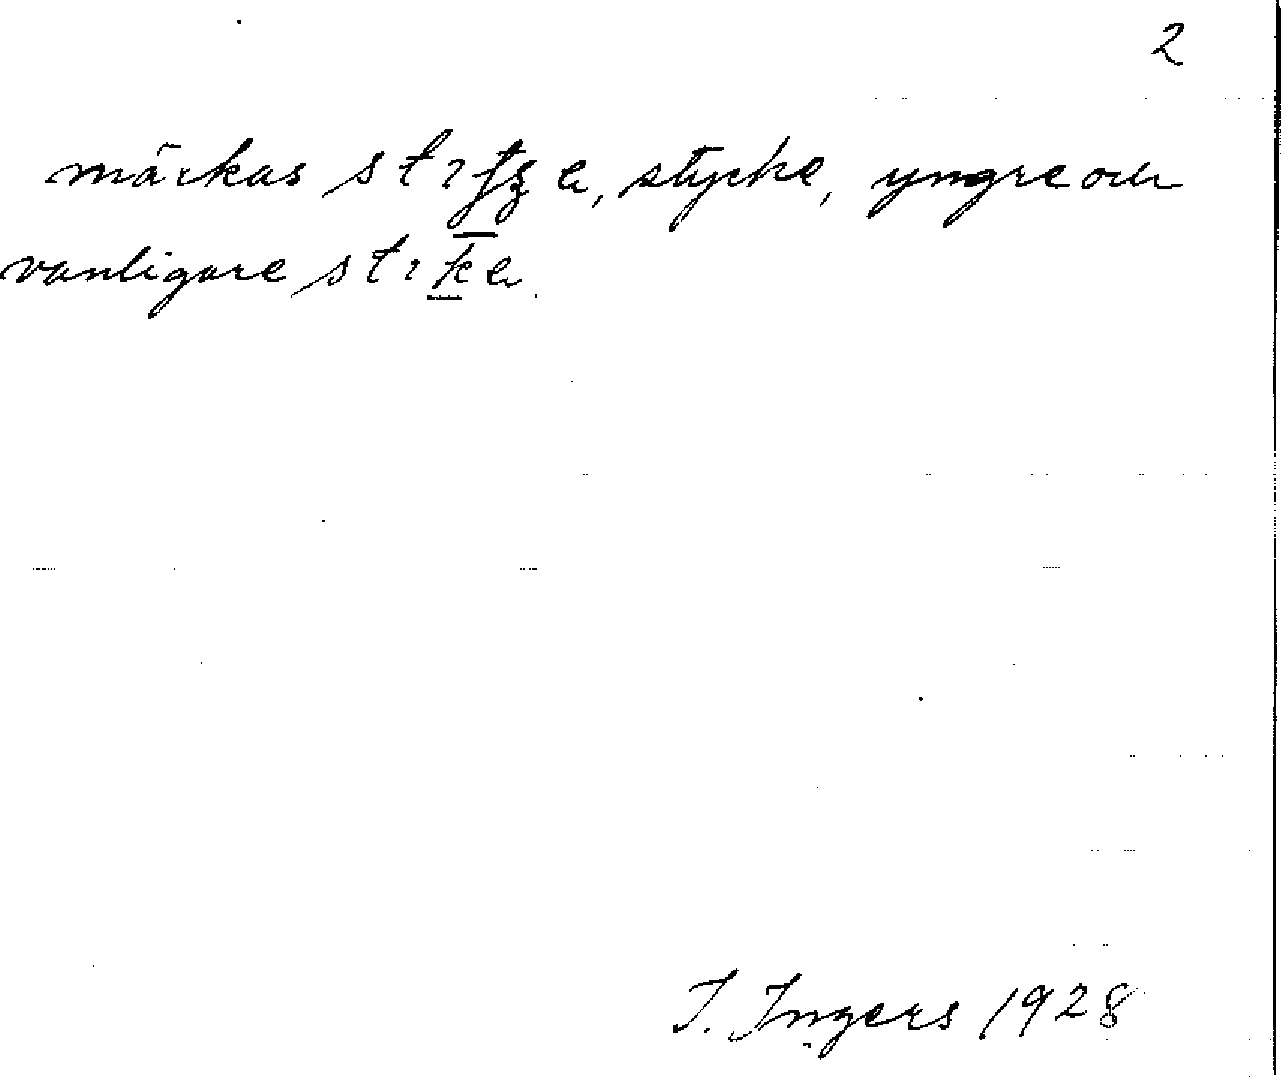 2
märkas , stycke, yngre och
vanligare
I. Ingers 1928